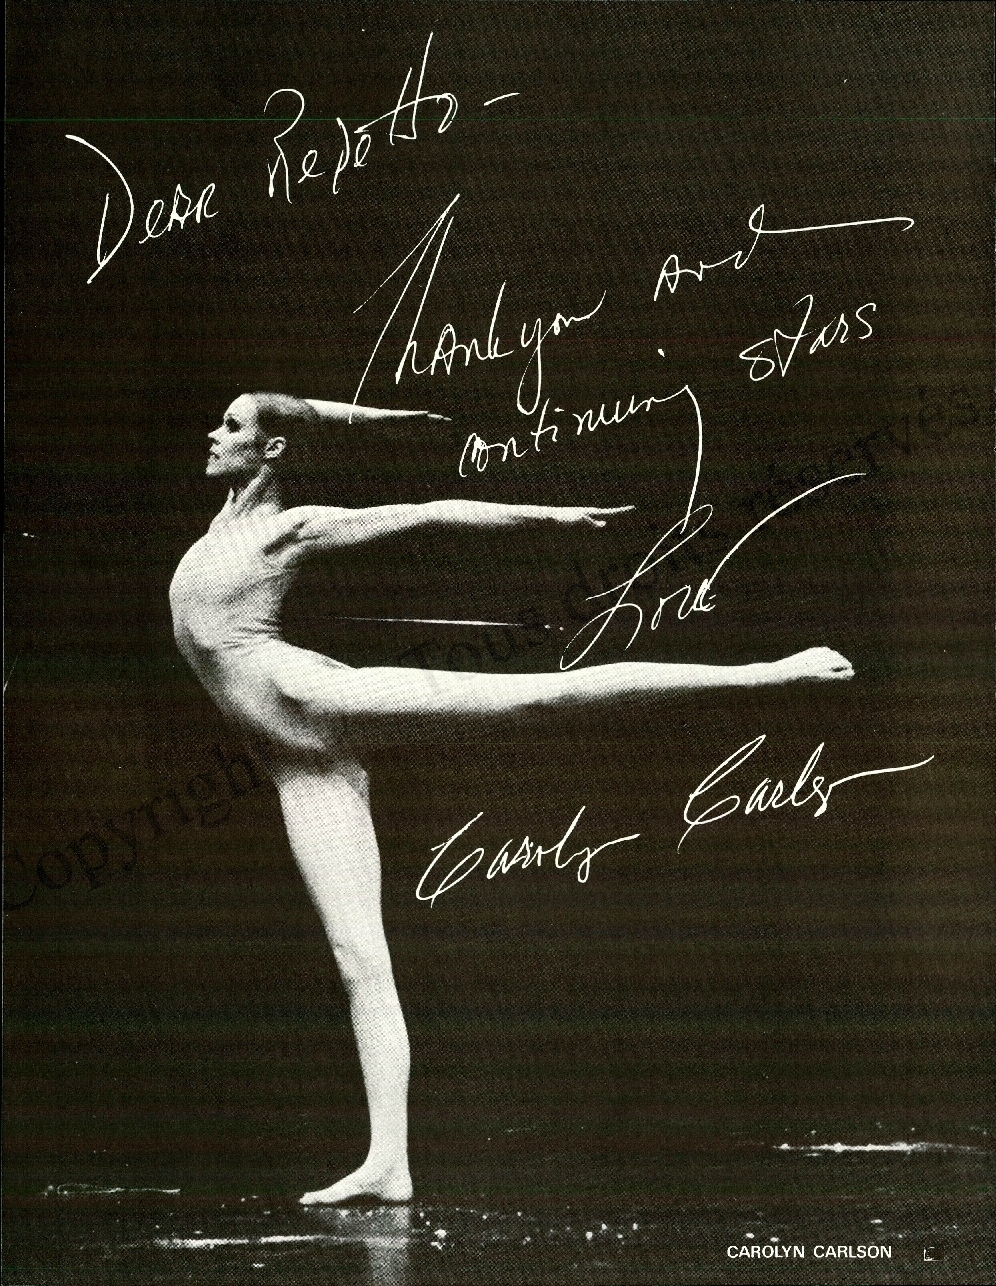 Dear Repetto -
Thank you and
continuing stars
Love
Carolyn Carlson
Copyright Tous droits réservés
CAROLYN CARLSON